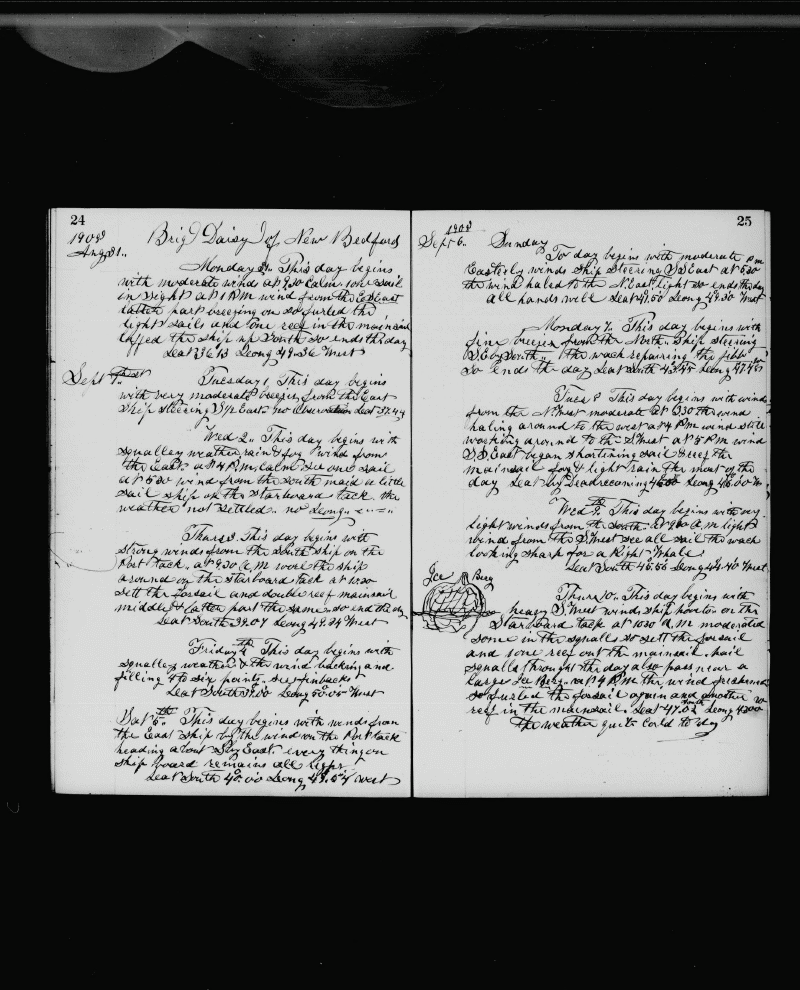 24
1908
Aug 31..
Brig Daisy of New Bedford
Monday 31. This day begins
with moderate winds at 9.30 Calm one sail
in sight at 1 P.M. wind from the E.S.East
latter part breezing on so furled the
light sails and one reef in the mainsail
luffed the ship up South so ends the day
Leat 36 13 Leong 49.36 West
Sept 1..
Tuesday 1 This day begins
with very moderate breezes from the East
Ship Steering East no observation Leat 37.44
Wed 2.. This day begins with
squalley weather rain & fog wind from
the East. at 4 P.M. Calm see one sail
at 5.30 wind from the South maid a little
sail ship on the Starboard tack. the
weather not settled.. no Leong..
Thurs 3. This day begins with
strong winds from the South ship on the
Port tack. at 9.30 A.M wore the ship
around on the Starboard tack at 10.30
sett the forsail and double reef mainsail
middle & latter part the same. so end the day
Leat South 39.07 Leong 49.24 West
Friday 4th This day begins with
squalley weather & the wind backing and
filling 4 to six points.. see finbacks
Leat South 39.00 Leong 50.00 West
Sat 5th This day begins with winds from
the East ship by the wind on the Port tack
heading about East. every thing on
ship board remains all light
Leat South 40.00 Leong 49.54 West
25
1908
Sept 6..
Sunday
To day begins with moderate
Easterly winds Ship Steering S.S.East at 5.30
the wind haled to the N.East light so ends the day
all hands well Leat 41.50 Leong 49.30 West
Monday 7. This day begins with
fine breezes from the North.. Ship Steering
S.E by South.. the wach repairing the
So ends the day Leat South 43.45 Leong 47.45
Tues 8 This day begins with winds
from the N.West moderate at 1.30 the wind
haling around to the west at 4 P.M wind still
working around to the S.West at 5 P.M wind
S.S.East began shortening sail & reef the
mainsail fog & light rain the most of the
day Leat by Deadreconing Leong 46.00
Wed 9th. This day begins with very
light winds from the South. at A.M light
wind from the S.West see all sail the wach
looking sharp for a Right Whale
Leat South 45.56 Leong 44.40 West
Ice Berg
Thurs 10.. This day begins with
heavy S.West winds ship hoveto on the
Starboard tack at 10.30 A.M moderated
some in the squalls so sett the forsail
and one reef out the mainsail. hail
squalls throught the day also pass near a
large Ice Berg.. at 4 P.M. the wind freshened
so furled the forsail again and another
reef in the mainsail. Leat 47.02 South Leong 43.00
The weather quite Cold to day